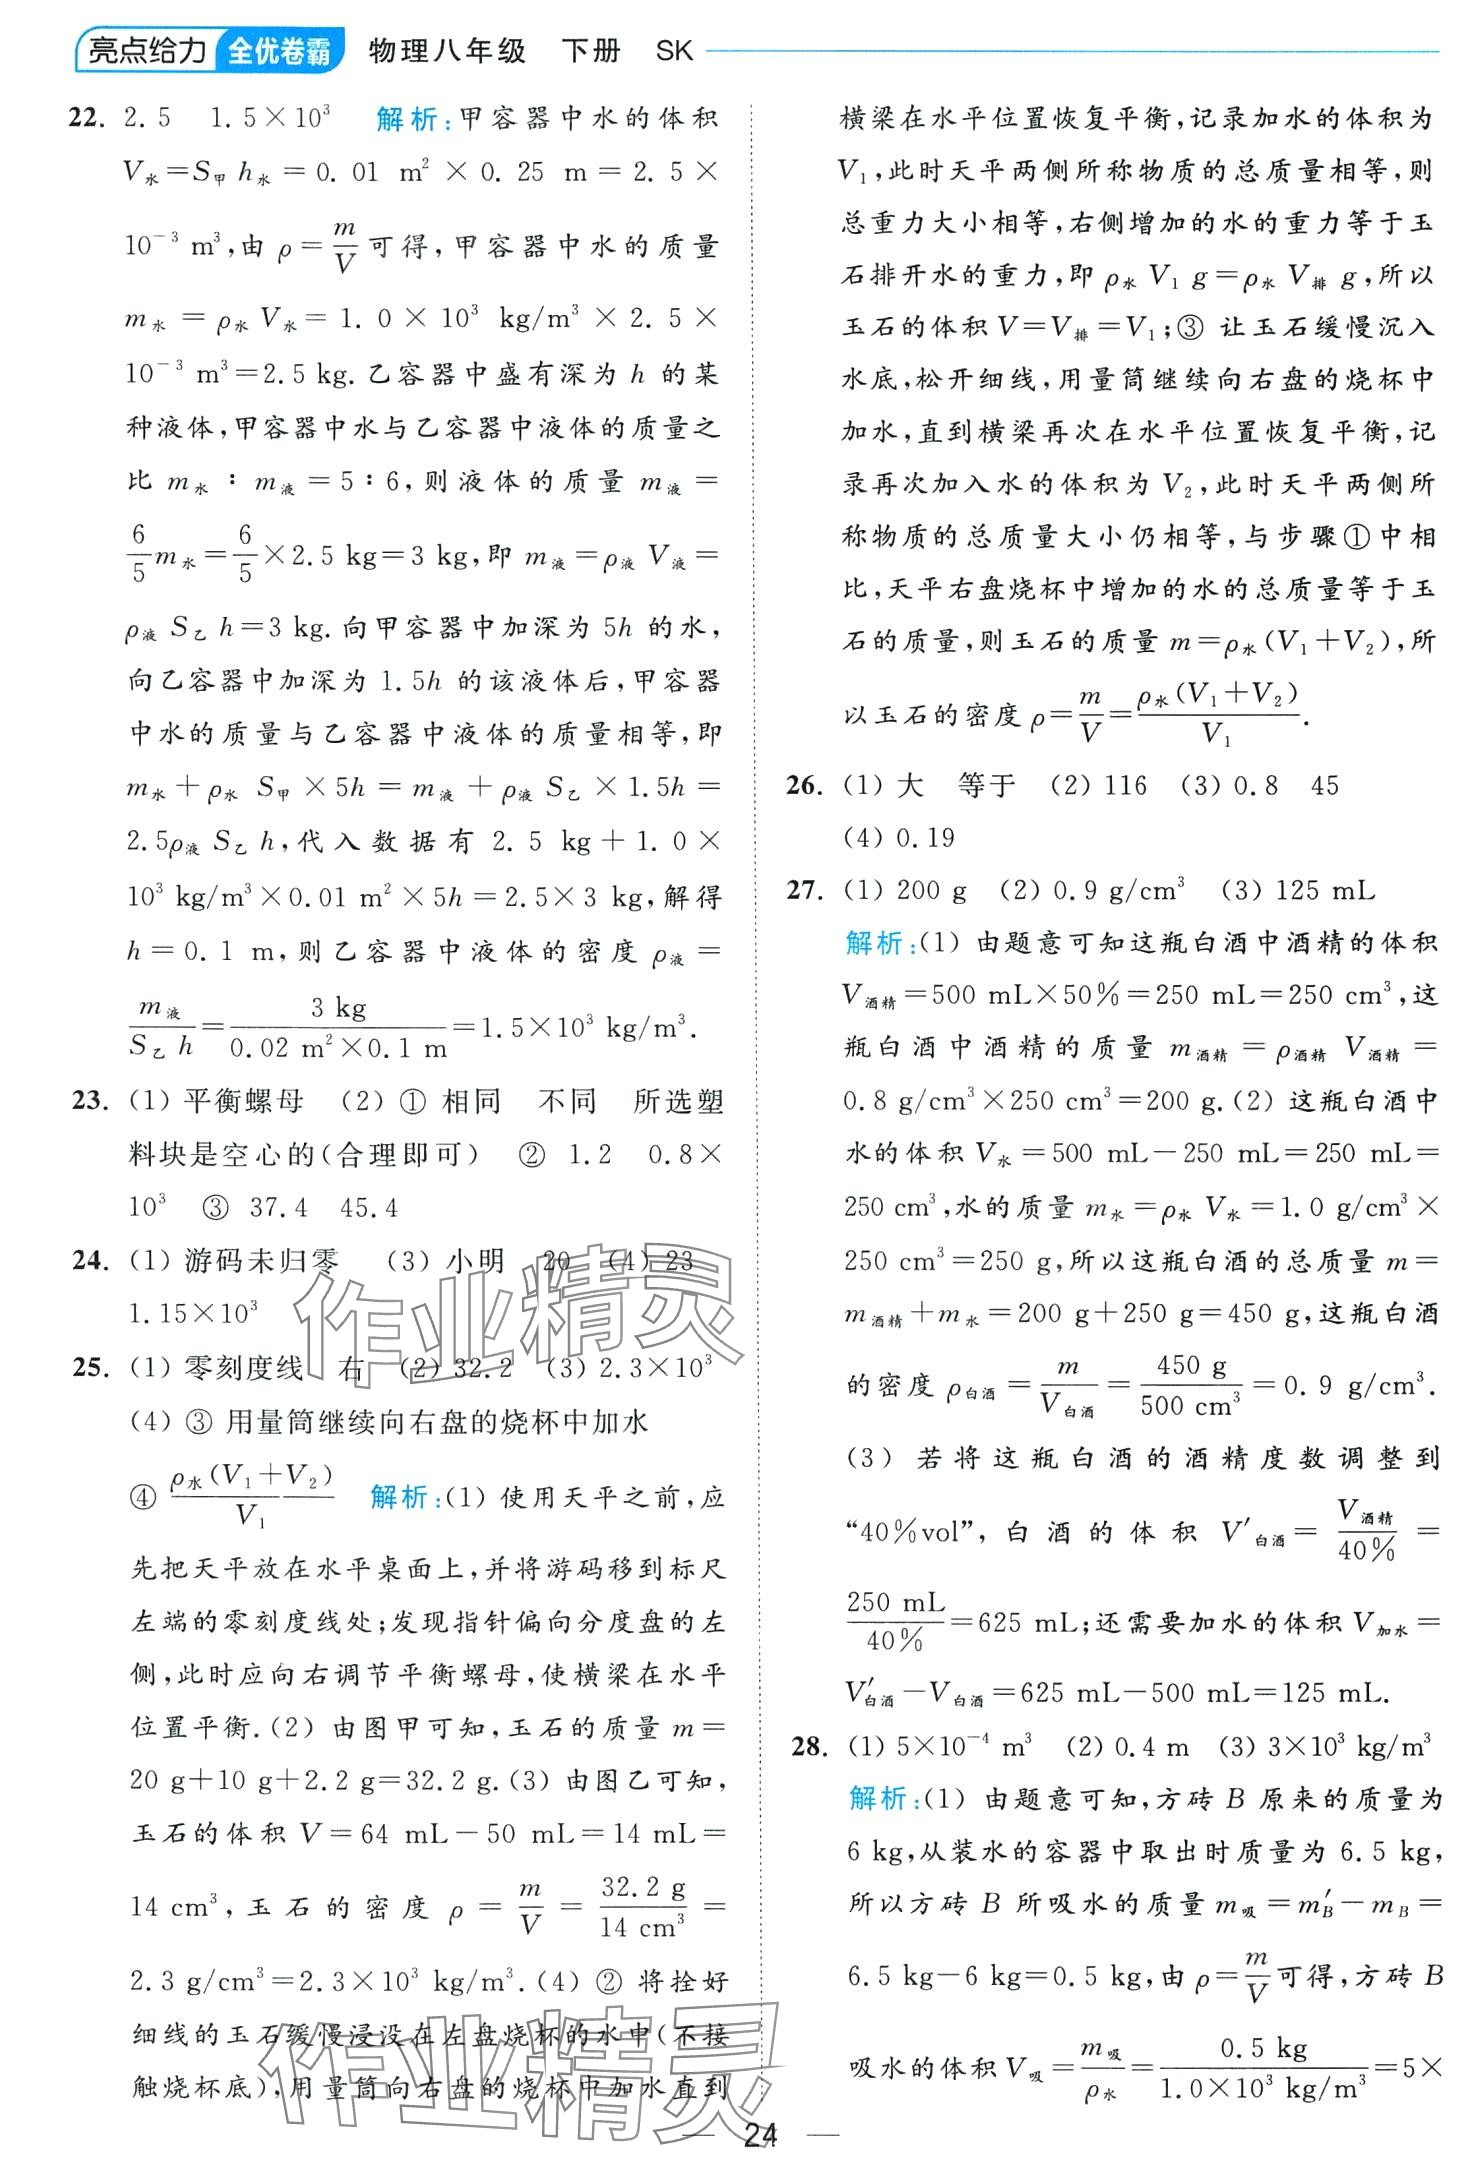 亮点给力 全优卷霸 物理八年级 下册 SK
22. 2.5 1.5×10³ 解析:甲容器中水的体积
V水=S甲 h水=0.01 m²×0.25 m=2.5×
10⁻³ m³,由 ρ=m/V可得,甲容器中水的质量
m水=ρ水 V水=1.0×10³ kg/m³×2.5×
10⁻³ m³=2.5 kg.乙容器中盛有深为 h 的某
种液体,甲容器中水与乙容器中液体的质量之
比 m水∶m液=5∶6,则液体的质量 m液=
6/5 m水=6/5×2.5 kg=3 kg,即 m液=ρ液 V液=
ρ液 S乙 h=3 kg.向甲容器中加深为 5h 的水,
向乙容器中加深为 1.5h 的该液体后,甲容器
中水的质量与乙容器中液体的质量相等,即
m水+ρ水 S甲×5h=m液+ρ液 S乙×1.5h=
2.5ρ液 S乙 h,代入数据有 2.5 kg+1.0×
10³ kg/m³×0.01 m²×5h=2.5×3 kg,解得
h=0.1 m,则乙容器中液体的密度 ρ液=
m液/S乙 h=3 kg/0.02 m²×0.1 m=1.5×10³ kg/m³.
23. (1) 平衡螺母 (2) ① 相同 不同 所选塑
料块是空心的(合理即可) ② 1.2 0.8×
10³ ③ 37.4 45.4
24. (1) 游码未归零 (3) 小明 20 (4) 23
1.15×10³
25. (1) 零刻度线 右 (2) 32.2 (3) 2.3×10³
(4) ③ 用量筒继续向右盘的烧杯中加水
④ ρ水(V₁+V₂)/V₁ 解析:(1) 使用天平之前,应
先把天平放在水平桌面上,并将游码移到标尺
左端的零刻度线处;发现指针偏向分度盘的左
侧,此时应向右调节平衡螺母,使横梁在水平
位置平衡.(2) 由图甲可知,玉石的质量 m=
20 g+10 g+2.2 g=32.2 g.(3) 由图乙可知,
玉石的体积 V=64 mL-50 mL=14 mL=
14 cm³,玉石的密度 ρ=m/V=32.2 g/14 cm³=
2.3 g/cm³=2.3×10³ kg/m³.(4) ② 将拴好
细线的玉石缓慢浸没在左盘烧杯的水中(不接
触烧杯底),用量筒向右盘的烧杯中加水直到
横梁在水平位置恢复平衡,记录加水的体积为
V₁,此时天平两侧所称物质的总质量相等,则
总重力大小相等,右侧增加的水的重力等于玉
石排开水的重力,即 ρ水 V₁ g=ρ水 V排 g,所以
玉石的体积 V=V排=V₁;③ 让玉石缓慢沉入
水底,松开细线,用量筒继续向右盘的烧杯中
加水,直到横梁再次在水平位置恢复平衡,记
录再次加入水的体积为 V₂,此时天平两侧所
称物质的总质量大小仍相等,与步骤①中相
比,天平右盘烧杯中增加的水的总质量等于玉
石的质量,则玉石的质量 m=ρ水(V₁+V₂),所
以玉石的密度 ρ=m/V=ρ水(V₁+V₂)/V₁.
26. (1) 大 等于 (2) 116 (3) 0.8 45
(4) 0.19
27. (1) 200 g (2) 0.9 g/cm³ (3) 125 mL
解析:(1) 由题意可知这瓶白酒中酒精的体积
V酒精=500 mL×50%=250 mL=250 cm³,这
瓶白酒中酒精的质量 m酒精=ρ酒精 V酒精=
0.8 g/cm³×250 cm³=200 g.(2) 这瓶白酒中
水的体积 V水=500 mL-250 mL=250 mL=
250 cm³,水的质量 m水=ρ水 V水=1.0 g/cm³×
250 cm³=250 g,所以这瓶白酒的总质量 m=
m酒精+m水=200 g+250 g=450 g,这瓶白酒
的密度 ρ白酒=m/V白酒=450 g/500 cm³=0.9 g/cm³.
(3) 若将这瓶白酒的酒精度数调整到
“40%vol”,白酒的体积 V′白酒=V酒精/40%=
250 mL/40%=625 mL;还需要加水的体积 V加水=
V′白酒-V白酒=625 mL-500 mL=125 mL.
28. (1) 5×10⁻⁴ m³ (2) 0.4 m (3) 3×10³ kg/m³
解析:(1) 由题意可知,方砖 B 原来的质量为
6 kg,从装水的容器中取出时质量为 6.5 kg,
所以方砖 B 所吸水的质量 m吸=m′B-mB=
6.5 kg-6 kg=0.5 kg,由 ρ=m/V可得,方砖 B
吸水的体积 V吸=m吸/ρ水=0.5 kg/1.0×10³ kg/m³=5×
作业精灵
作业精灵
— 24 —